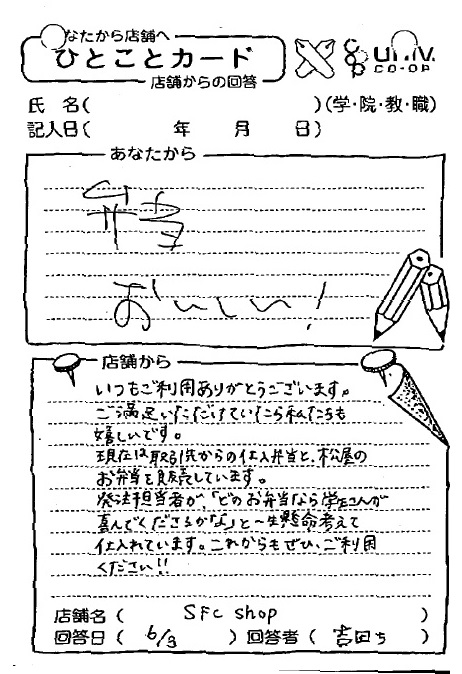 なたから店舗へ
ひとことカード
店舗からの回答
UNIV.
CO-OP
氏 名( )(学・院・教・職)
記入日( 年 月 日)
あなたから
弁当
おいしい!
店舗から
いつもご利用ありがとうございます。
ご満足いただけていたら私たちも
嬉しいです。
現在は取引先からの仕入弁当と、松屋の
お弁当を販売しています。
発注担当者が、「どのお弁当なら学生さんが
喜んでくださるかなぁ」と一生懸命考えて
仕入れています。これからもぜひ、ご利用
ください!!
店舗名( SFC shop )
回答日( 6/3 )回答者( 吉田 )